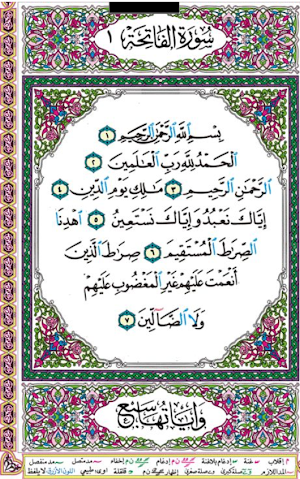 سُورَةُ الفَاتِحَةِ ١
بِسْمِ ٱللَّهِ ٱلرَّحْمَٰنِ ٱلرَّحِيمِ ١
ٱلْحَمْدُ لِلَّهِ رَبِّ ٱلْعَٰلَمِينَ ٢
ٱلرَّحْمَٰنِ ٱلرَّحِيمِ ٣ مَٰلِكِ يَوْمِ ٱلدِّينِ ٤
إِيَّاكَ نَعْبُدُ وَإِيَّاكَ نَسْتَعِينُ ٥ ٱهْدِنَا
ٱلصِّرَٰطَ ٱلْمُسْتَقِيمَ ٦ صِرَٰطَ ٱلَّذِينَ
أَنْعَمْتَ عَلَيْهِمْ غَيْرِ ٱلْمَغْضُوبِ عَلَيْهِمْ
وَلَا ٱلضَّآلِّينَ ٧
وَآيَاتُهَا سَبْعٌ